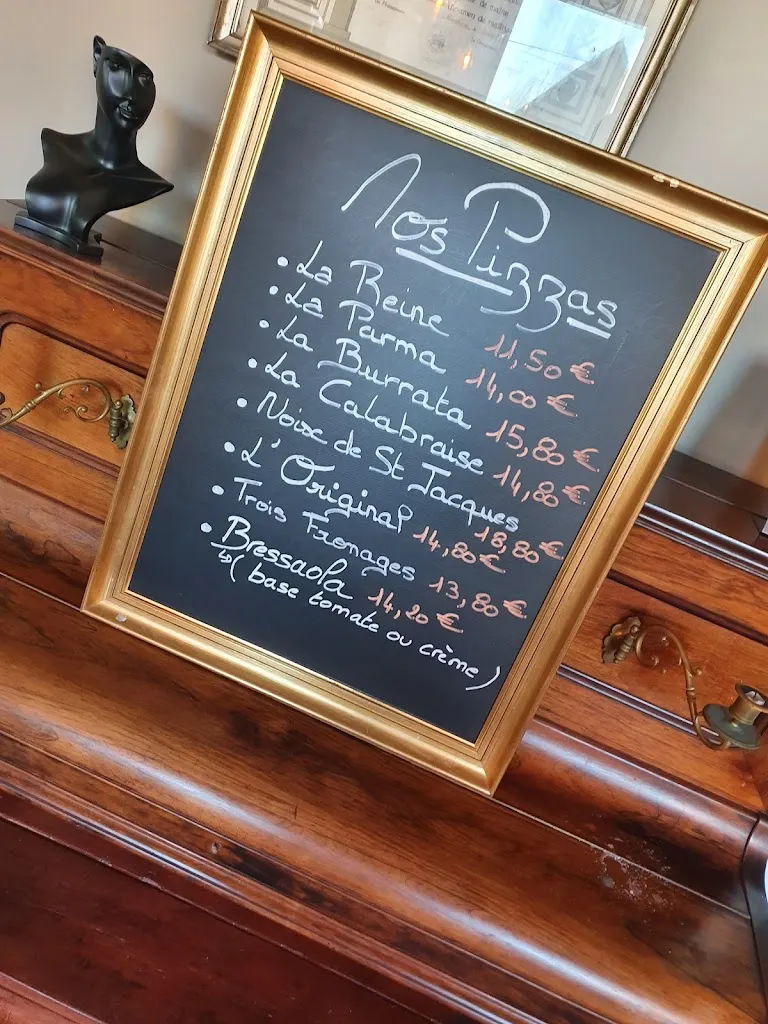 Nos Pizzas
• La Reine 11,50 €
• La Parma 14,00 €
• La Burrata 15,80 €
• La Calabraise 14,80 €
• Noix de St Jacques 18,80 €
• L'Original 14,80 €
• Trois Fromages 13,80 €
• Bressaola 14,20 €
↳ (base tomate ou crème)